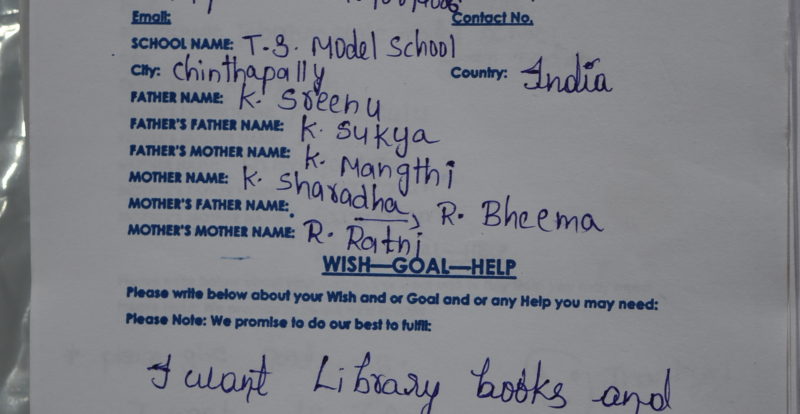 Email: Contact No.
SCHOOL NAME: T.S. Model School
City: Chinthapally Country: India
FATHER NAME: K. Sreenu
FATHER'S FATHER NAME: K. Sukya
FATHER'S MOTHER NAME: K. Mangthi
MOTHER NAME: K. Sharadha
MOTHER'S FATHER NAME: R. Bheema
MOTHER'S MOTHER NAME: R. Ratni
WISH—GOAL—HELP
Please write below about your Wish and or Goal and or any Help you may need:
Please Note: We promise to do our best to fulfil:
I want Library books and